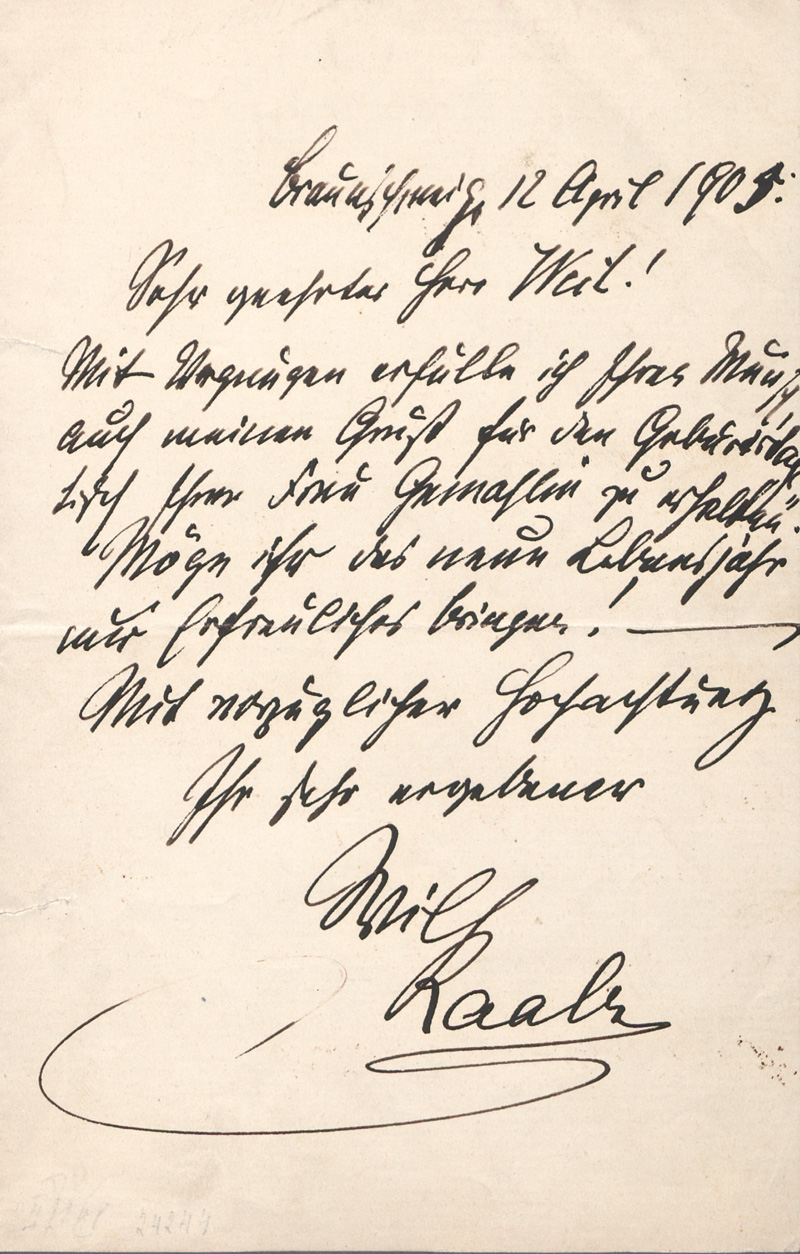 Braunschweig, 12 April 1905.
Sehr geehrter Herr Weil!
Mit Vergnügen erfülle ich Ihren Wunsch
auch meinen Gruß für den Geburtstag
tisch Ihrer Frau Gemahlin zu erhalten.
Möge ihr das neue Lebensjahr
nur Erfreuliches bringen! —
Mit vorzüglicher Hochachtung
Ihr sehr ergebener
Wilh
Raabe
24244